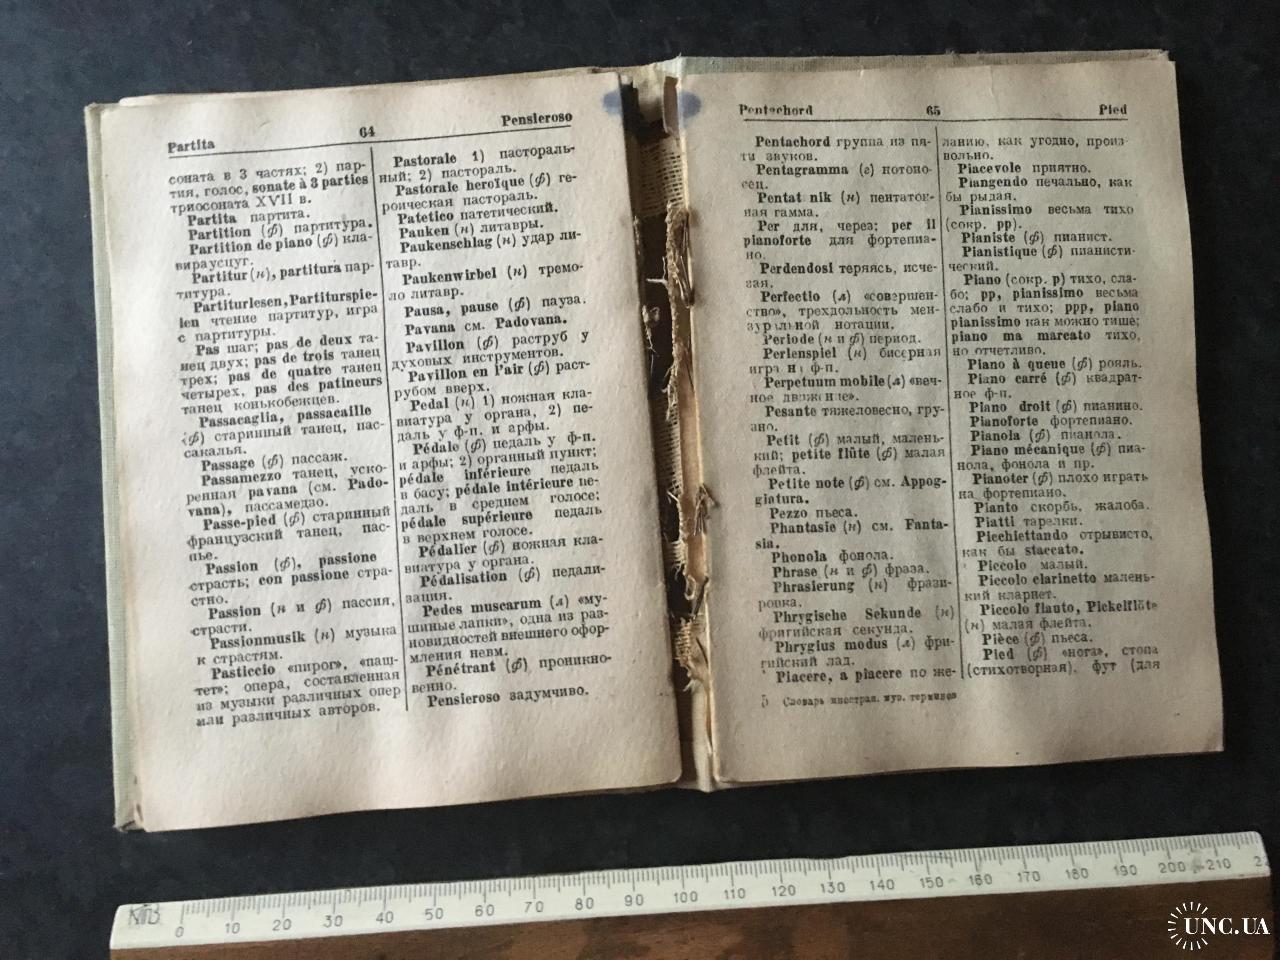 Partita 64 Pensieroso
соната в 3 частях; 2) пар-
тия, голос, sonate à 3 parties
триосоната XVII в.
Partita партита.
Partition (ф) партитура.
Partition de piano (ф) кла-
вираусцуг.
Partitur (н), partitura пар-
титура.
Partiturlesen, Partiturspie-
len чтение партитур, игра
с партитуры.
Pas шаг; pas de deux та-
нец двух; pas de trois танец
трех; pas de quatre танец
четырех, pas des patineurs
танец конькобежцев.
Passacaglia, passacaille
(ф) старинный танец, пас-
сакалья.
Passage (ф) пассаж.
Passamezzo танец, уско-
ренная pavana (см. Pado-
vana), пассамедзо.
Passe-pied (ф) старинный
французский танец, пас-
пье.
Passion (ф), passione
страсть; con passione стра-
стно.
Passion (н и ф) пассия,
страсти.
Passionmusik (н) музыка
к страстям.
Pasticcio «пирог», «паш-
тет»; опера, составленная
из музыки различных опер
или различных авторов.
Pastorale 1) пастораль-
ный; 2) пастораль.
Pastorale heroïque (ф) ге-
роическая пастораль.
Patetico патетический.
Pauken (н) литавры.
Paukenschlag (н) удар ли-
тавр.
Paukenwirbel (н) тремо-
ло литавр.
Pausa, pause (ф) пауза.
Pavana см. Padovana.
Pavillon (ф) раструб у
духовых инструментов.
Pavillon en l'air (ф) раст-
рубом вверх.
Pedal (н) 1) ножная кла-
виатура у органа, 2) пе-
даль у ф-п. и арфы.
Pédale (ф) педаль у ф-п.
и арфы; 2) органный пункт;
pédale inférieure педаль
в басу; pédale intérieure пе-
даль в среднем голосе;
pédale supérieure педаль
в верхнем голосе.
Pédalier (ф) ножная кла-
виатура у органа.
Pédalisation (ф) педали-
зация.
Pedes muscarum (л) «му-
шиные лапки», одна из раз-
новидностей внешнего офор-
мления невм.
Pénétrant (ф) проникно-
венно.
Pensieroso задумчиво.
Pentachord 65 Pied
Pentachord группа из пя-
ти звуков.
Pentagramma (г) нотоно-
сец.
Pentat nik (н) пентатон-
ная гамма.
Per для, через; per il
pianoforte для фортепиа-
но.
Perdendosi теряясь, исче-
зая.
Perfectio (л) «совершен-
ство», трехдольность мен-
зуральной нотации.
Periode (н и ф) период.
Perlenspiel (н) бисерная
игра на ф-п.
Perpetuum mobile (л) «веч-
ное движение».
Pesante тяжеловесно, гру-
зно.
Petit (ф) малый, малень-
кий; petite flûte (ф) малая
флейта.
Petite note (ф) см. Appog-
giatura.
Pezzo пьеса.
Phantasie (н) см. Fanta-
sia.
Phonola фонола.
Phrase (н и ф) фраза.
Phrasierung (н) фрази-
ровка.
Phrygische Sekunde (н)
фригийская секунда.
Phrygius modus (л) фри-
гийский лад.
Piacere, a piacere по же-
5 Словарь иностран. муз. терминов
ланию, как угодно, произ-
вольно.
Piacevole приятно.
Piangendo печально, как
бы рыдая.
Pianissimo весьма тихо
(сокр. pp).
Pianiste (ф) пианист.
Pianistique (ф) пианисти-
ческий.
Piano (сокр. p) тихо, сла-
бо; pp, pianissimo весьма
слабо и тихо; ppp, piano
pianissimo как можно тише;
piano ma marcato тихо,
но отчетливо.
Piano à queue (ф) рояль.
Piano carré (ф) квадрат-
ное ф-п.
Piano droit (ф) пианино.
Pianoforte фортепиано.
Pianola (ф) пианола.
Piano mécanique (ф) пиа-
нола, фонола и пр.
Pianoter (ф) плохо играть
на фортепиано.
Pianto скорбь, жалоба.
Piatti тарелки.
Picchiettando отрывисто,
как бы staccato.
Piccolo малый.
Piccolo clarinetto малень-
кий кларнет.
Piccolo flauto, Pickelflöte
(н) малая флейта.
Pièce (ф) пьеса.
Pied (ф) «нога», стопа
(стихотворная), фут (для
0 10 20 30 40 50 60 70 80 90 100 110 120 130 140 150 160 170 180 190 200 210
UNC.UA